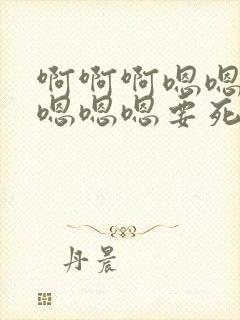 啊啊啊嗯嗯
嗯嗯嗯要死
丹晨